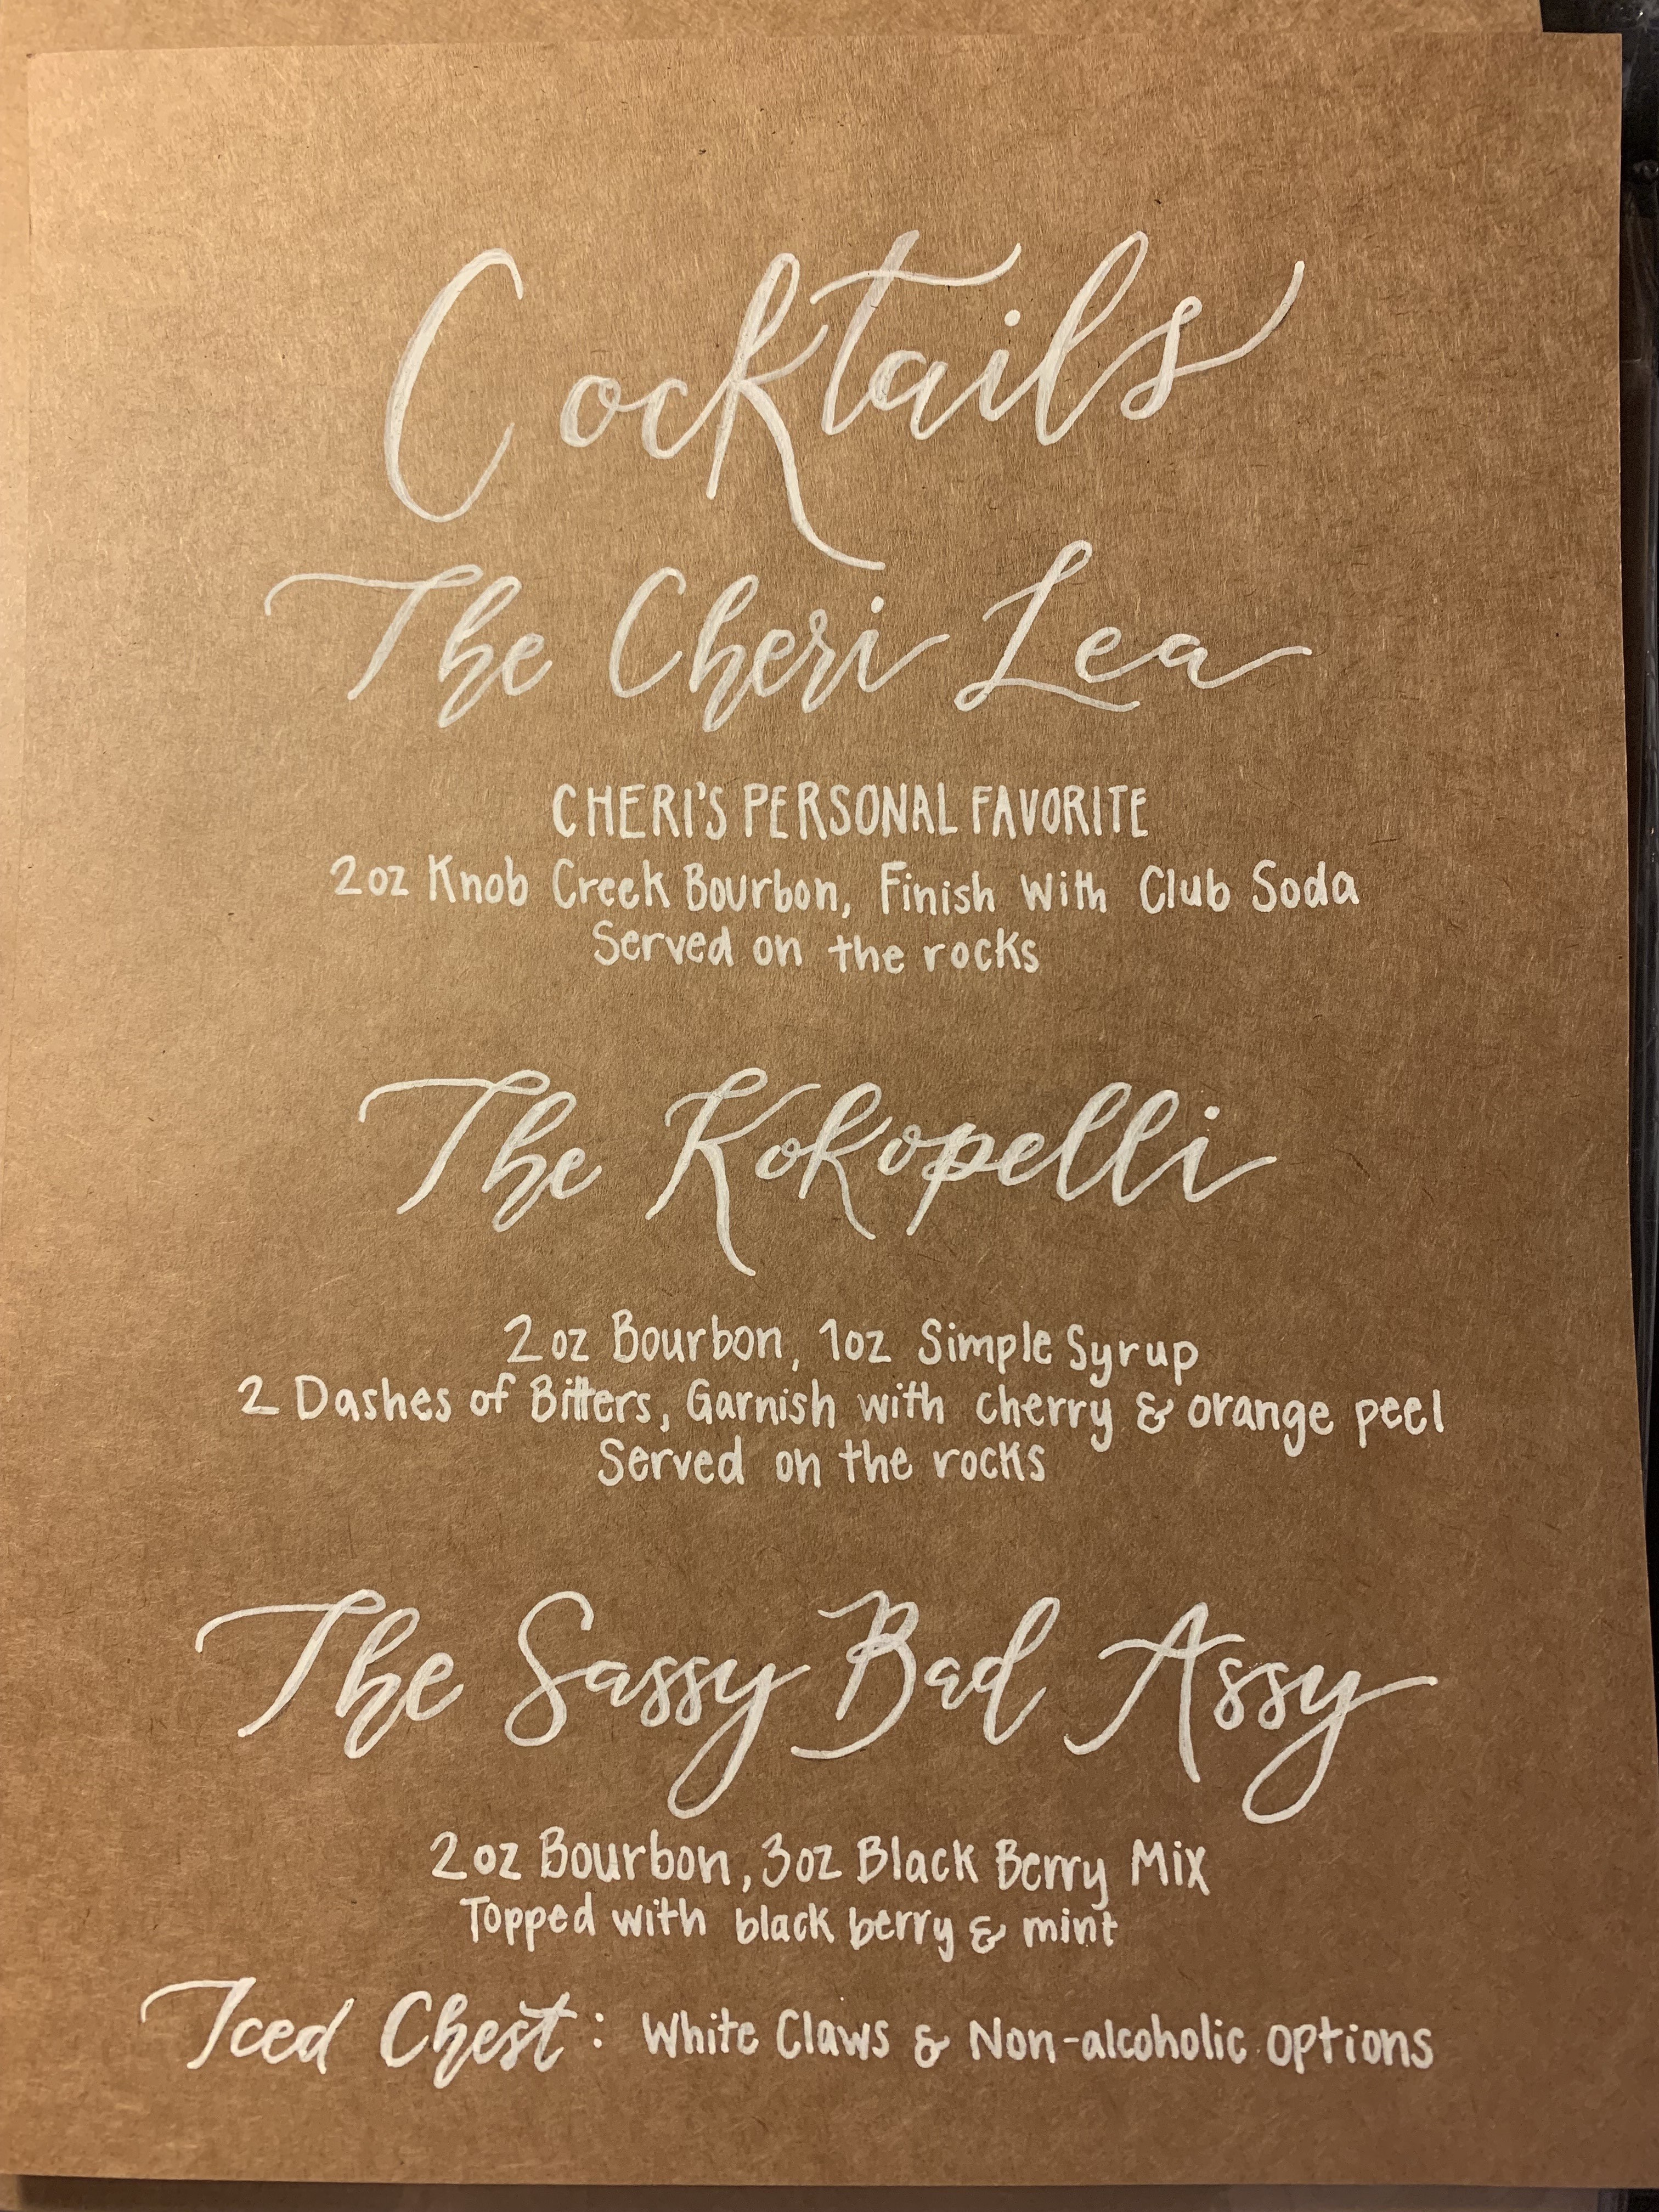 Cocktails
The Cheri Lea
CHERI'S PERSONAL FAVORITE
2oz Knob Creek Bourbon, Finish with Club Soda
Served on the rocks
The Kokopelli
2oz Bourbon, 1oz Simple Syrup
2 Dashes of Bitters, Garnish with cherry & orange peel
Served on the rocks
The Sassy Bad Assy
2oz Bourbon, 3oz Black Berry Mix
Topped with black berry & mint
Iced Chest: White Claws & Non-alcoholic options